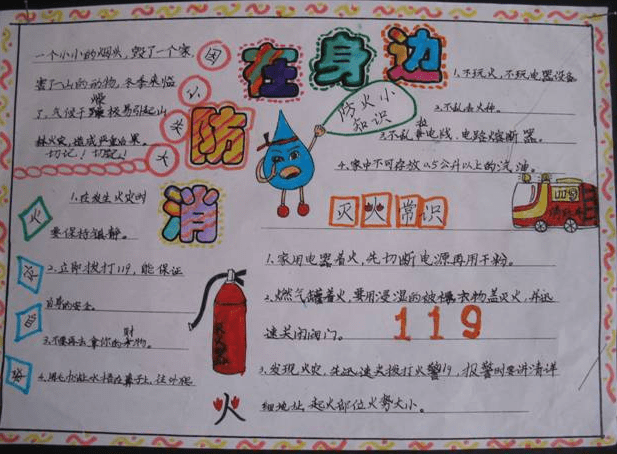 消防在身边
一个小小的烟头,毁了一个家,
害了一山的动物,冬季来临
了,气候干燥极易引起山
林火灾,造成严重后果。
切记!切记!
防火小
知识
1、不玩火,不玩电器设备
2、不乱丢火种。
3、不乱私电线、电路熔断器。
4、家中不可存放0.5公升以上的汽油。
火
1、在发生火灾时
要保持镇静。
2、立即拨打119,能保证
自身的安全。
4、用
灭火常识
1、家用电器着火,先切断电源再用干粉。
2、燃气罐着火,要用浸湿的被褥衣物盖灭火,并迅
速关闭阀门。
119
3、发现火灾,先迅速火拨打火警119,报警时要讲清详
细地址、起火部位火势大小。
火